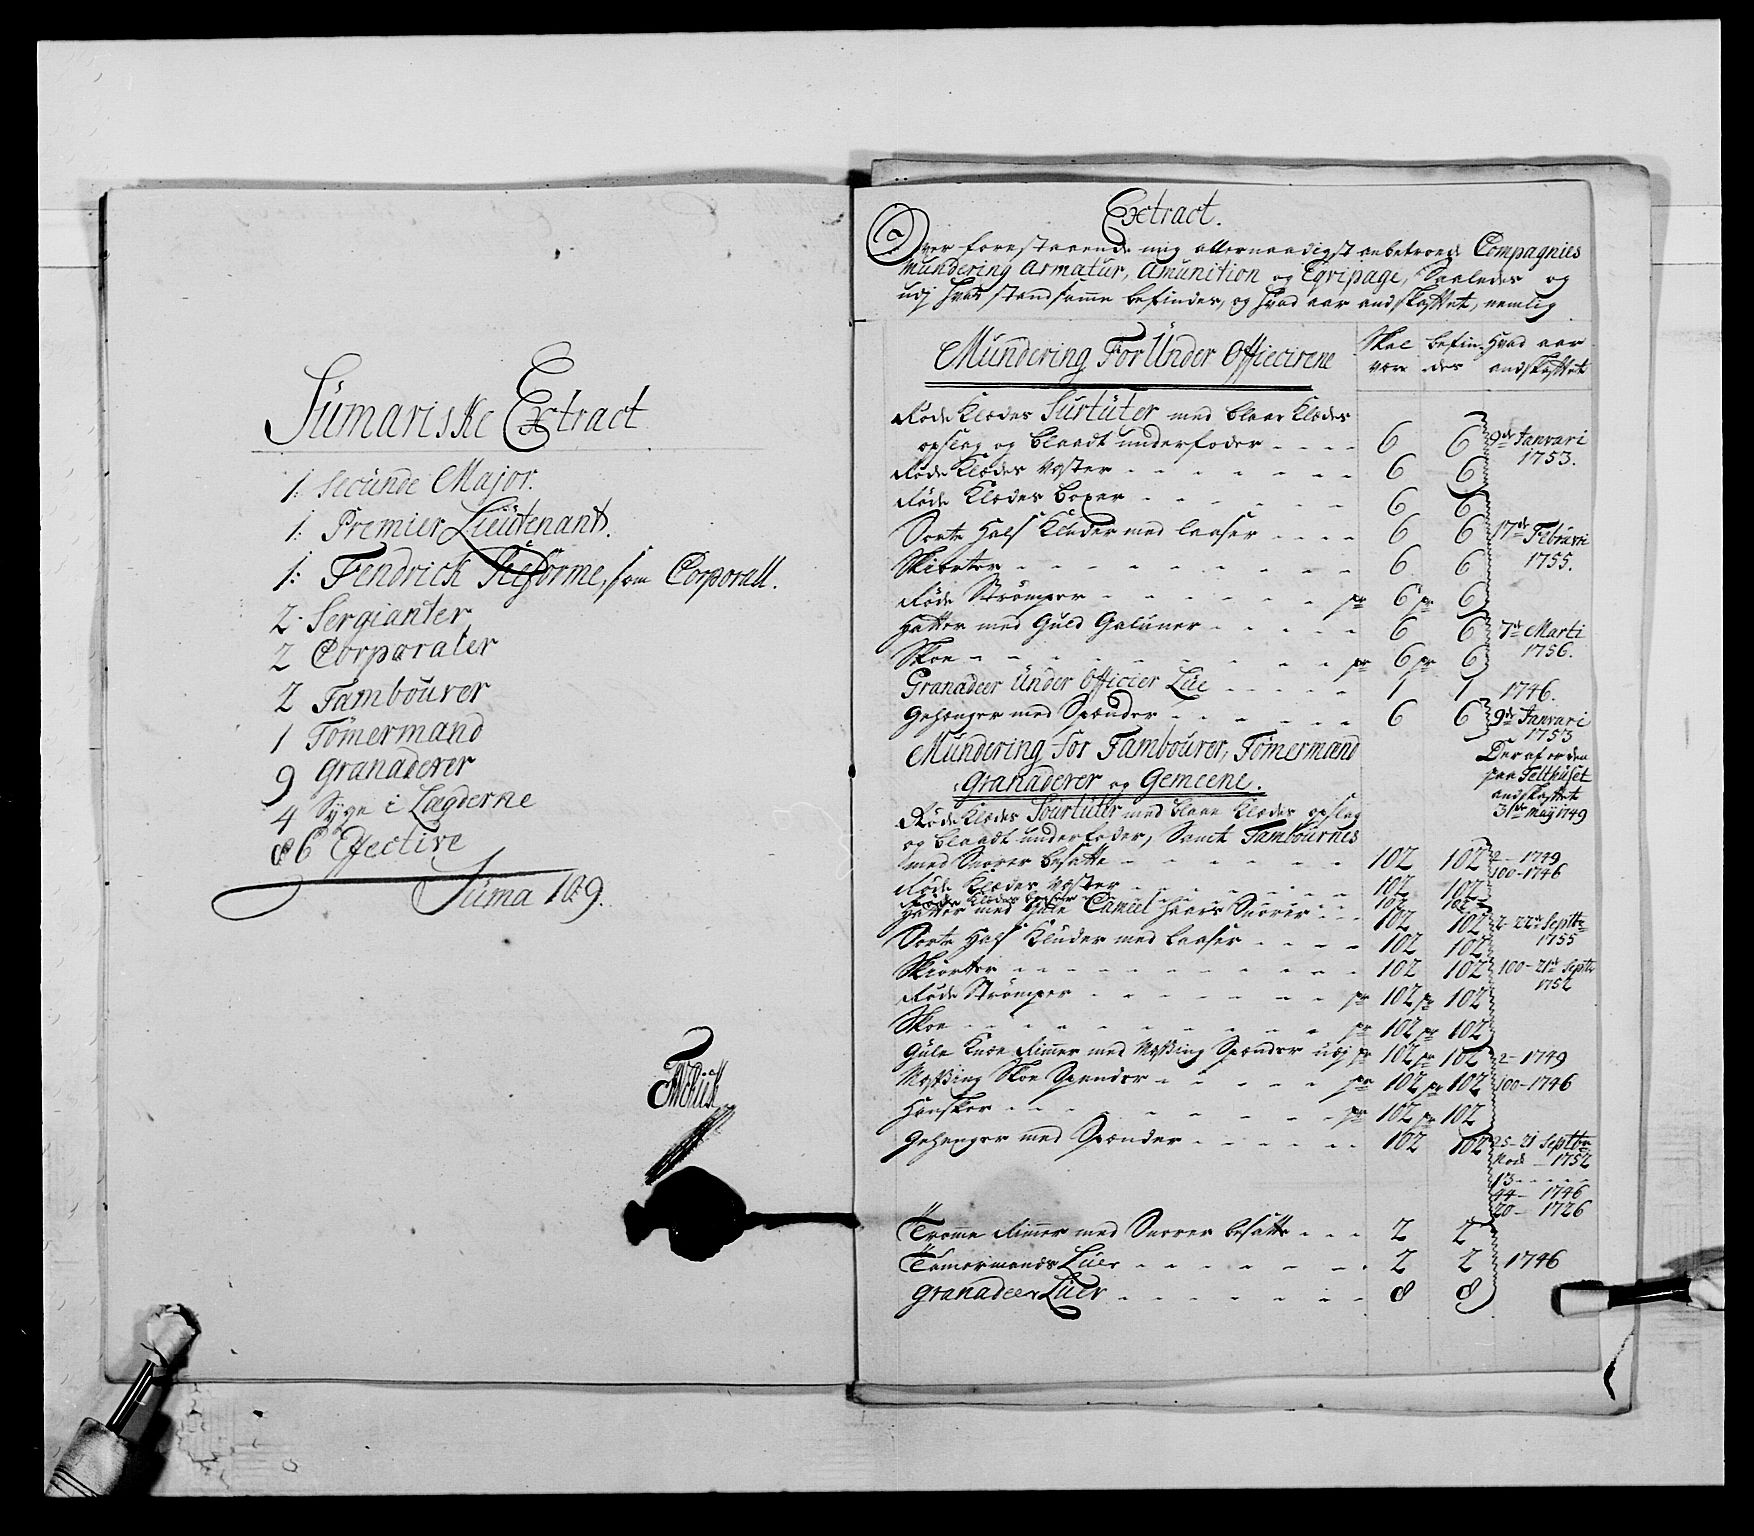 Sumariske Extract
1: Secunde Major.
1: Premier Lieutenant.
1: Fendrick Reforme, som Corporall.
2 Sergianter
2 Corporaler
2 Tambourer
1 Tömermand
9 Granaderer
4 Syge i Lægderne
86 Effective
Suma 109.
Extract.
Over forestaaende mig allernaadigst anbetroede Compagnies
Mundering Armatur, Amunition og Eqvipage, Saaledes og
udj hvad stand samme befindes, og hvad aar andskaffet, nemlig
Mundering For Under Officirene
Skal være
befindes
Hvad aar andskaffet
Røde Klædes Surtuter med blaae Klædes
opslag og blaadt underfoder - - - - 6 6 9de Janvari
1753.
Røde Klædes Vester - - - - - - - 6 6
Røde Klædes boxer - - - - - - 6 6
Sorte Hals Kluder med laaser - - - - 6 6 17de Februari
Skiorter - - - - - - - - - 6 6 1755.
Røde Strømper - - - - - - pr 6 pr 6
Hatter med Guld Galuner - - - - - 6 6 7de Marti
Skoe - - - - - - - - - pr 6 pr 6 1756.
Granadeer Under Officier Lue - - - - - 1 1 1746.
Gehænger med Spænder - - - - - - - 6 6 9de Janvari
1753
Mundering for Tambourer, Tömermand
Granaderer og Gemeene.
Der af er den
paa Telthuset
andskaffet
31de Maij 1749
Røde Klædes Sourtuter med blaae Klædes opslag
og blaadt underfoder, Samt Tambournes
med Snorer besatte - - - - - - 102 102 2 - 1749
100 - 1746
Røde Klædes Vester - - - - - - - 102 102
Røde Klædes boxser - - - - 102 102
Hatter med Gule Camiel haars Snorer - - - 102 102 2 - 22de Septbr
1755
Sorte Hals Kluder med laaser - - - - 102 102
Skiorter - - - - - - - - - 102 102 100 - 21de Septbr
1752
Røde Strømper - - - - - - - pr 102 pr 102
Skoe - - - - - - - - - pr 102 pr 102
Gule Knæe Rimer med Messing Spænder udj pr 102 pr 102 2 - 1749
Messing Skoe Spender - - - - - pr 102 pr 102 100 - 1746
Hansker - - - - - - - - pr 102 pr 102
Gehenger med Spænder - - - - - - 102 102 25 - 21 Septbr
1752
13 - - - -
44 - 1746
20 - 1726
Tromme Rimer med Snorer besatte - - - 2 2
Tømermands Luer - - - - - - - 2 2 1746
Granadeer Luer - - - - - - - 8 8